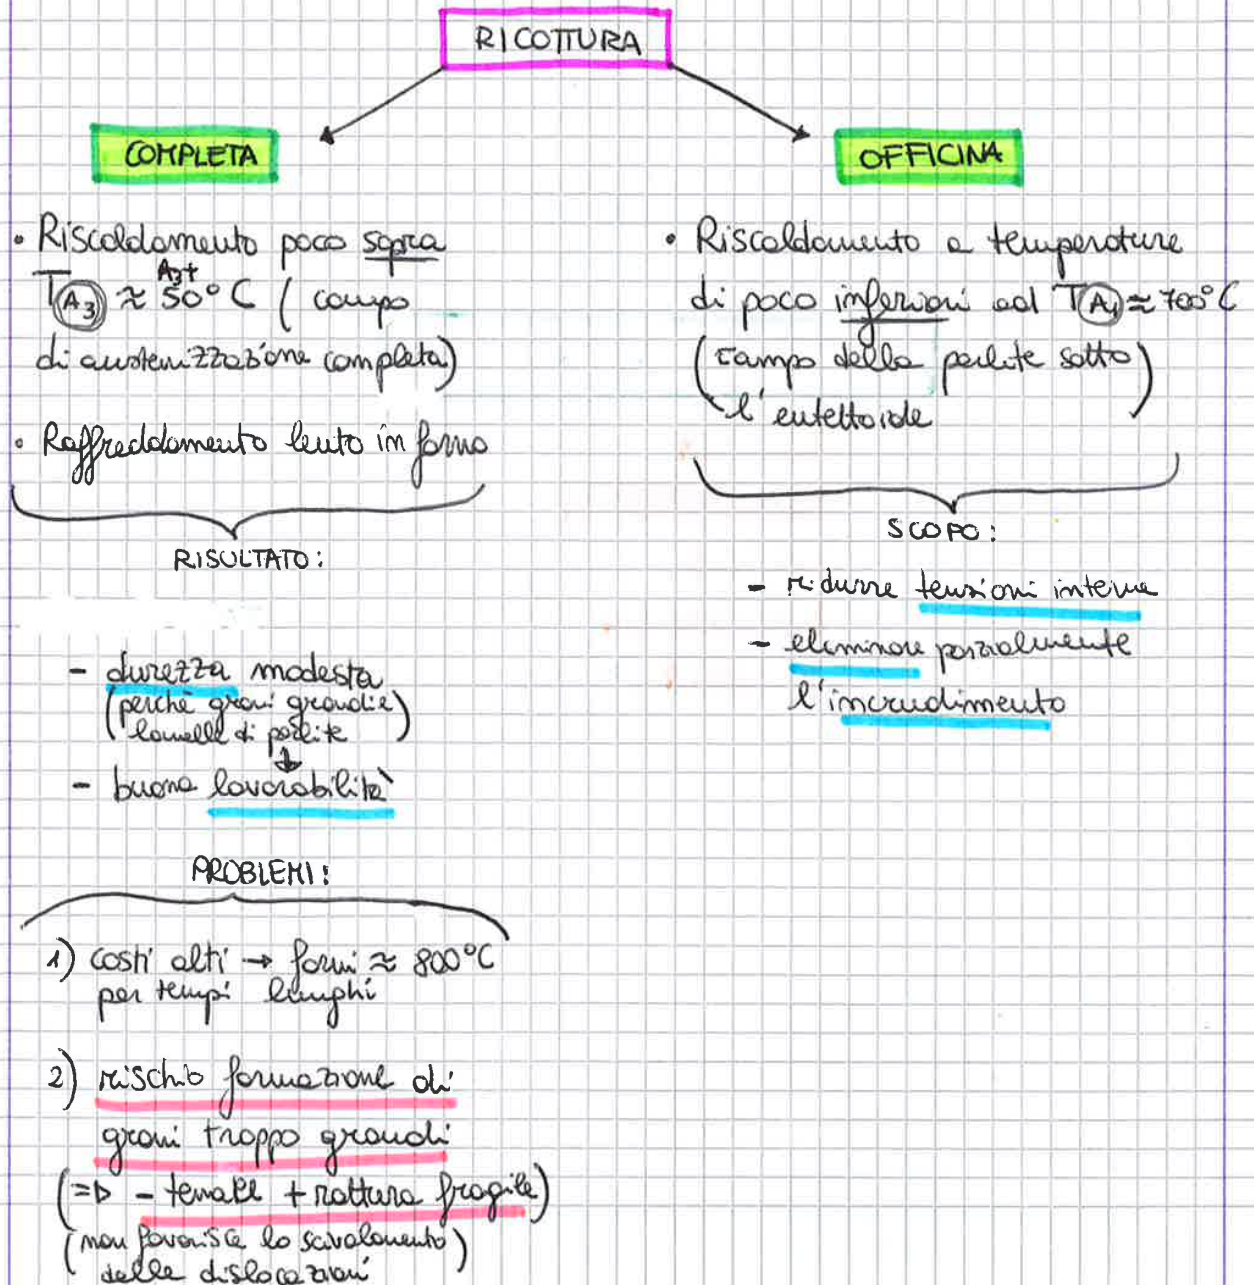 RICOTTURA
COMPLETA
• Riscaldamento poco sopra
A3+
TA3 ≈ 50°C (campo
di austenizzazione completa)
• Raffreddamento lento in forno
RISULTATO:
- durezza modesta
(perchè grani grandi e
lamelle di perlite)
- buona lavorabilità
PROBLEMI:
1) costi alti → forni ≈ 800°C
per tempi lunghi
2) rischio formazione di
grani troppo grandi
(=D - tenace + rottura fragile)
(non favorisce lo scivolamento
delle dislocazioni
OFFICINA
• Riscaldamento a temperature
di poco inferiori ad TA1 ≈ 700°C
(campo della perlite sotto
l'eutettoide)
SCOPO:
- ridurre tensioni interne
- eliminare parzialmente
l'incrudimento